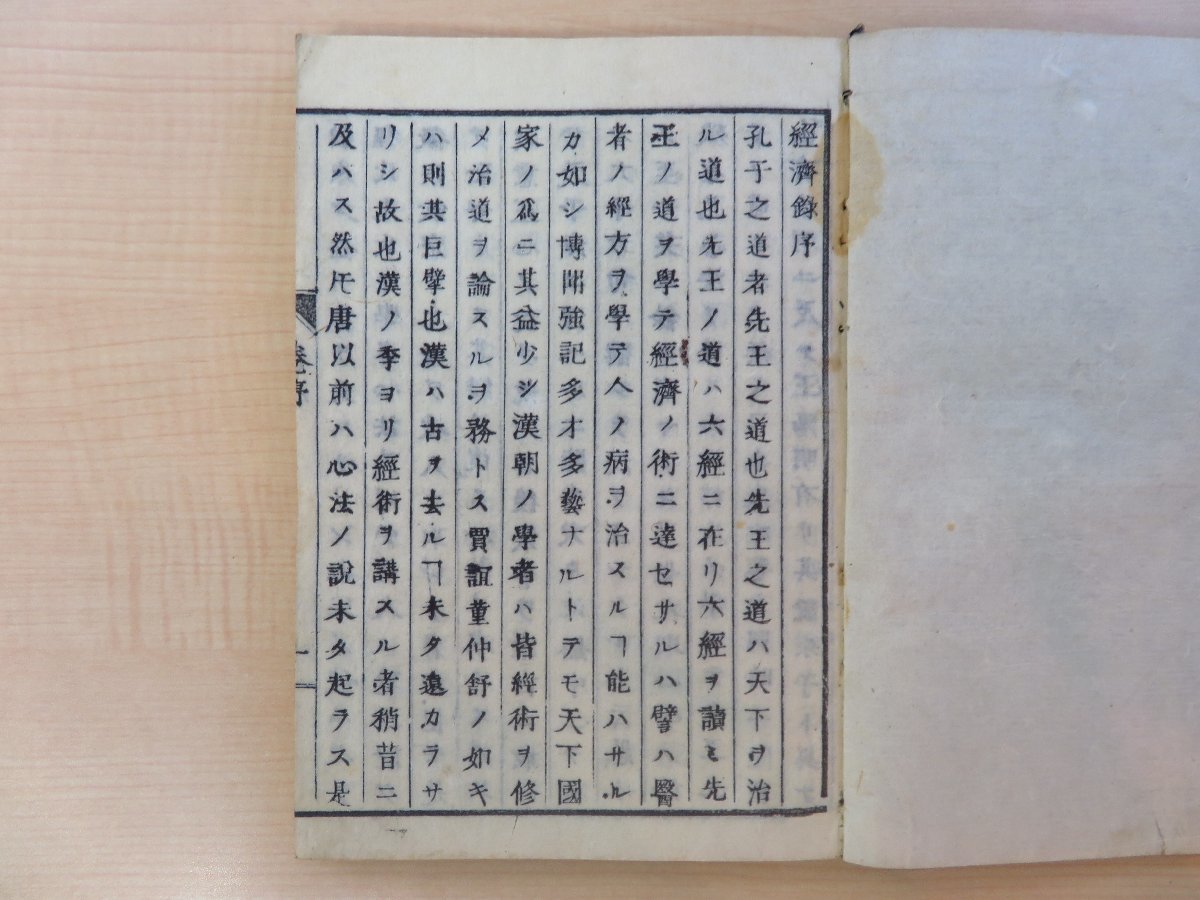 經濟錄序
孔子之道者先王之道也先王之道ハ天下ヲ治
ル道也先王ノ道ハ六經ニ在リ六經ヲ讀ミ先
王ノ道ヲ學テ經濟ノ術ニ達セサルハ譬ハ醫
者ノ經方ヲ學テ人ノ病ヲ治スルヿ能ハサル
カ如シ博聞強記多才多藝ナルトテモ天下國
家ノ爲ニ其益少シ漢朝ノ學者ハ皆經術ヲ修
メ治道ヲ論スルヲ務トス賈誼董仲舒ノ如キ
ハ則其巨擘也漢ハ古ヲ去ルヿ未タ遠カラサ
リシ故也漢ノ季ヨリ經術ヲ講スル者稍昔ニ
及バス然𪜈唐以前ハ心法ノ說未タ起ラス是
卷序
一